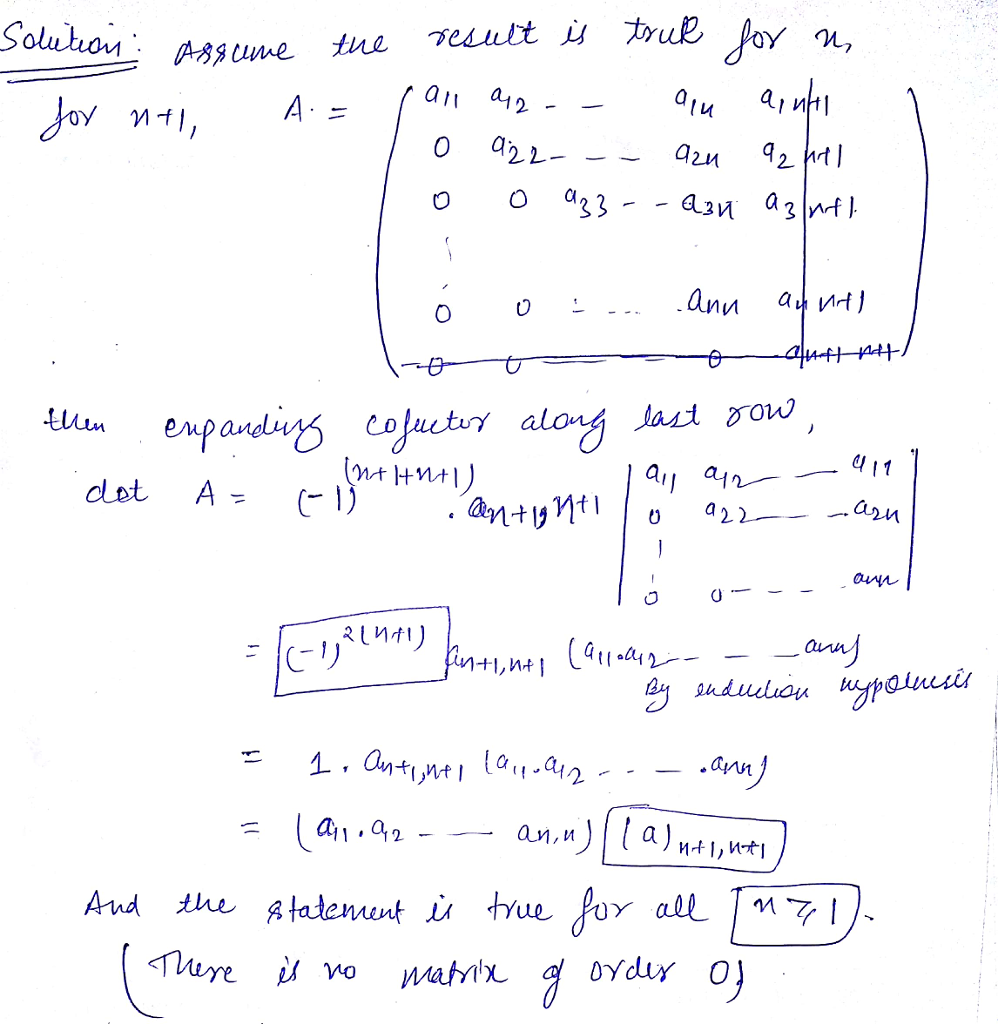 Solution: Assume the result is true for n,
for n+1, A = ( a11 a12 - - a1n a1 n+1
0 a22 - - - a2n a2 n+1
0 0 a33 - - a3n a3 n+1
0 0 - ... ann an n+1
0 0 - - 0 an+1 n+1 )
then expanding cofactor along last row,
det A = (-1)^(n+1+n+1) . an+1, n+1 | a11 a12 - - a11
0 a22 - - a2n
0 0 - - - ann |
= (-1)^2(n+1) an+1,n+1 (a11.a12 - - - ann)
By induction hypothesis
= 1. an+1,n+1 (a11.a12 - - - .ann)
= (a11.a12 - - an,n) (a)n+1,n+1
And the statement is true for all n ≥ 1.
(There is no matrix of order 0)